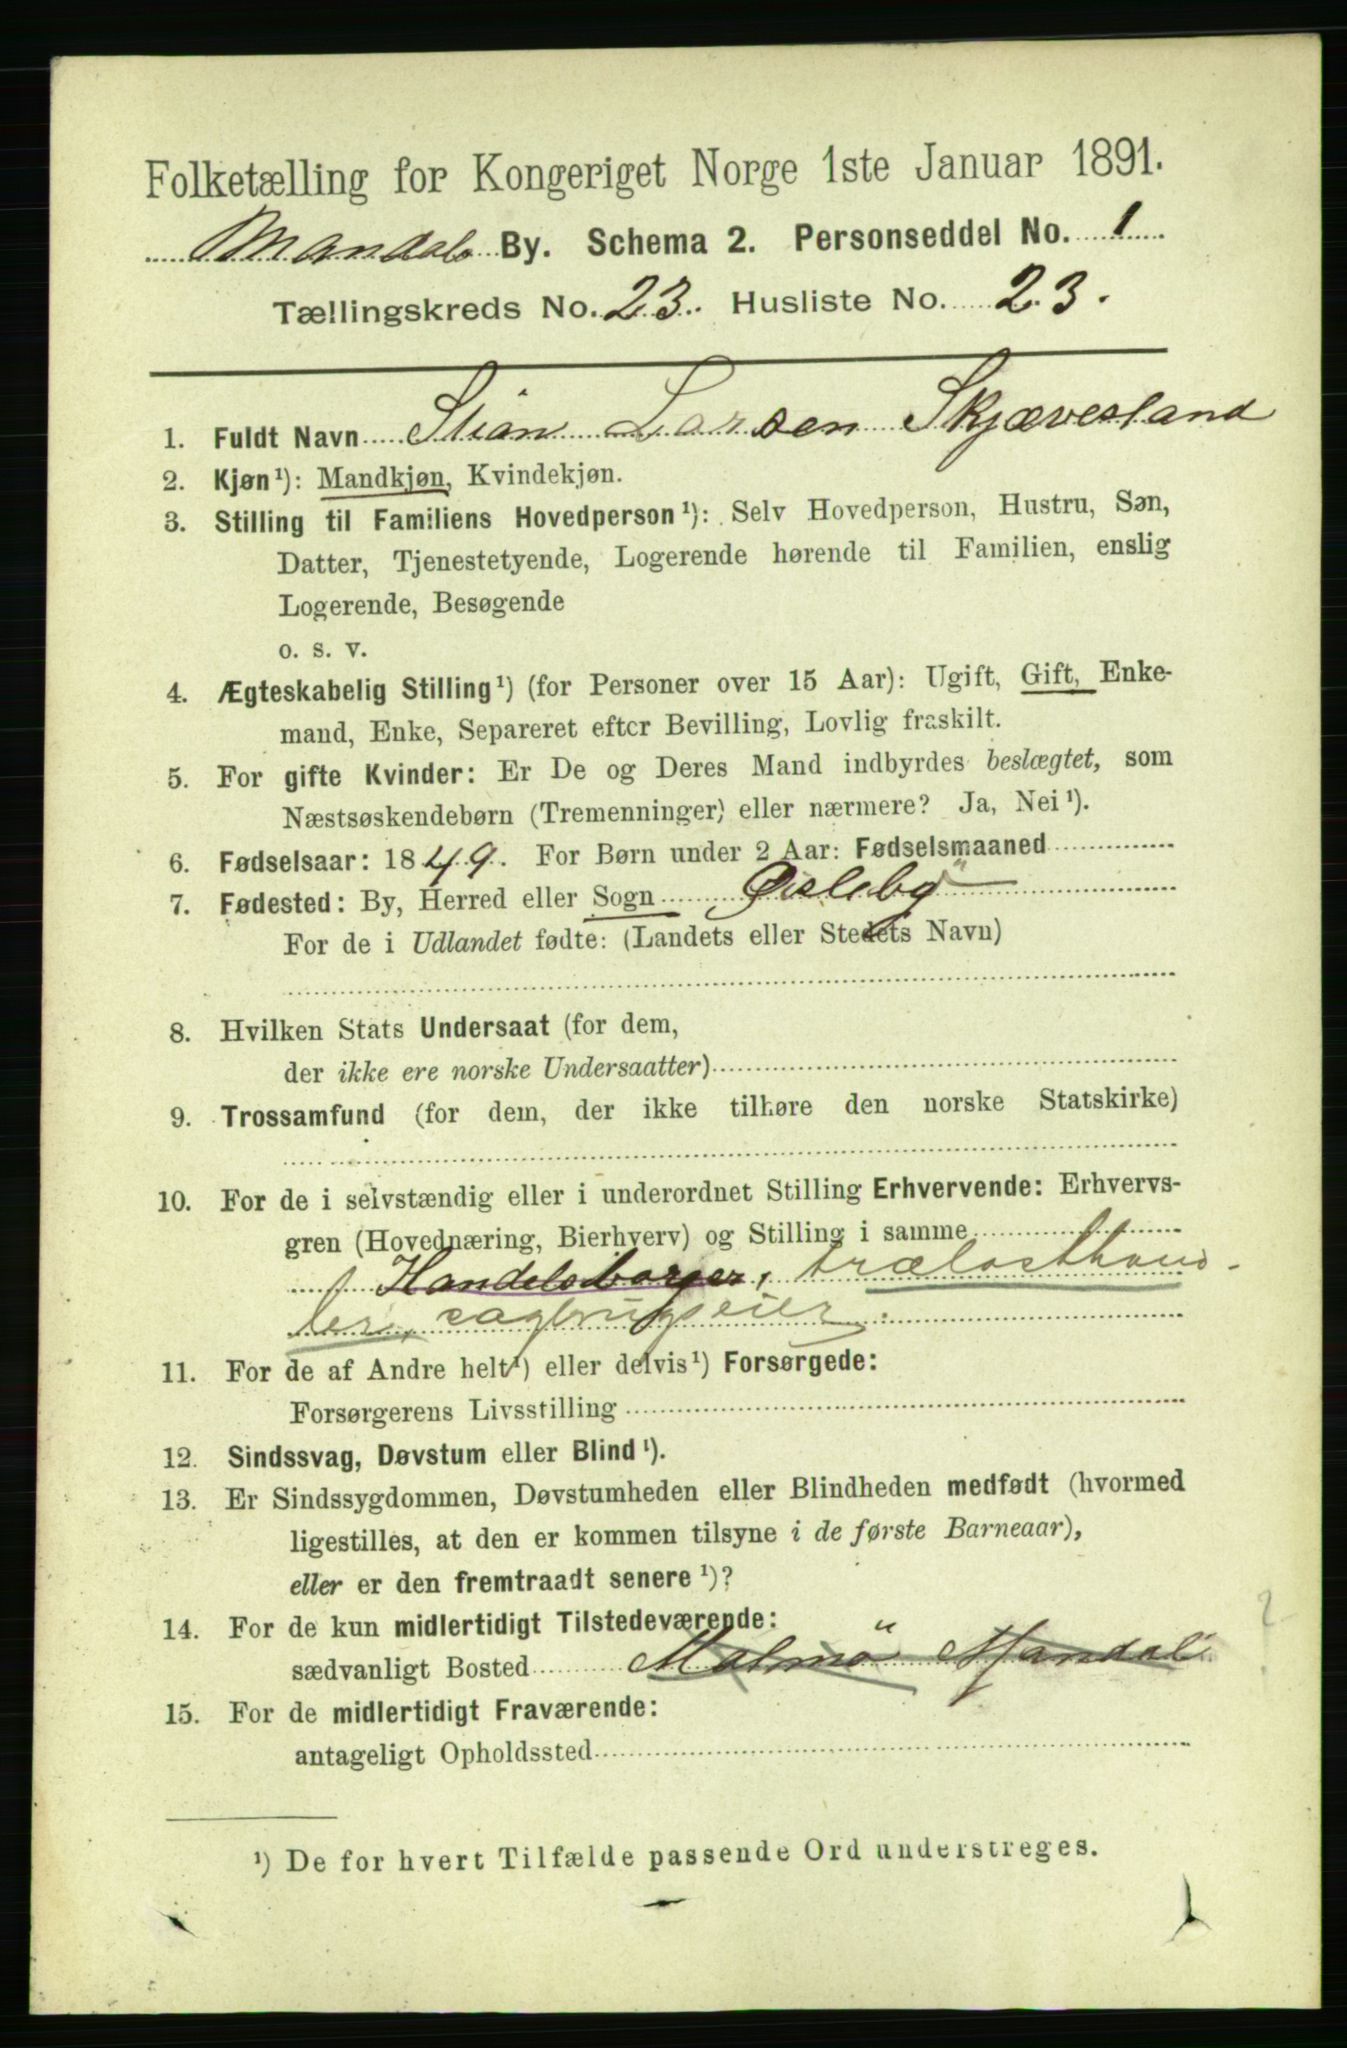 Folketælling for Kongeriget Norge 1ste Januar 1891.
Mandals By. Schema 2. Personseddel No. 1
Tællingskreds No. 23. Husliste No. 23.
1. Fuldt Navn Stian Larsen Skjævesland
2. Kjøn¹): Mandkjøn, Kvindekjøn.
3. Stilling til Familiens Hovedperson¹): Selv Hovedperson, Hustru, Søn,
Datter, Tjenestetyende, Logerende hørende til Familien, enslig
Logerende, Besøgende
o. s. v.
4. Ægteskabelig Stilling¹) (for Personer over 15 Aar): Ugift, Gift, Enke-
mand, Enke, Separeret efter Bevilling, Lovlig fraskilt.
5. For gifte Kvinder: Er De og Deres Mand indbyrdes beslægtet, som
Næstsøskendebørn (Tremenninger) eller nærmere? Ja, Nei¹).
6. Fødselsaar: 1849. For Børn under 2 Aar: Fødselsmaaned
7. Fødested: By, Herred eller Sogn Øislebø
For de i Udlandet fødte: (Landets eller Stedets Navn)
8. Hvilken Stats Undersaat (for dem,
der ikke ere norske Undersaatter)
9. Trossamfund (for dem, der ikke tilhøre den norske Statskirke)
10. For de i selvstændig eller i underordnet Stilling Erhvervende: Erhvervs-
gren (Hovednæring, Bierhverv) og Stilling i samme
Handelsborger, trælasthand-
ler, sagbrugseier
11. For de af Andre helt¹) eller delvis¹) Forsørgede:
Forsørgerens Livsstilling
12. Sindssvag, Døvstum eller Blind¹).
13. Er Sindssygdommen, Døvstumheden eller Blindheden medfødt (hvormed
ligestilles, at den er kommen tilsyne i de første Barneaar),
eller er den fremtraadt senere¹)?
14. For de kun midlertidigt Tilstedeværende:
sædvanligt Bosted Malmö Mandal
15. For de midlertidigt Fraværende:
antageligt Opholdssted
¹) De for hvert Tilfælde passende Ord understreges.